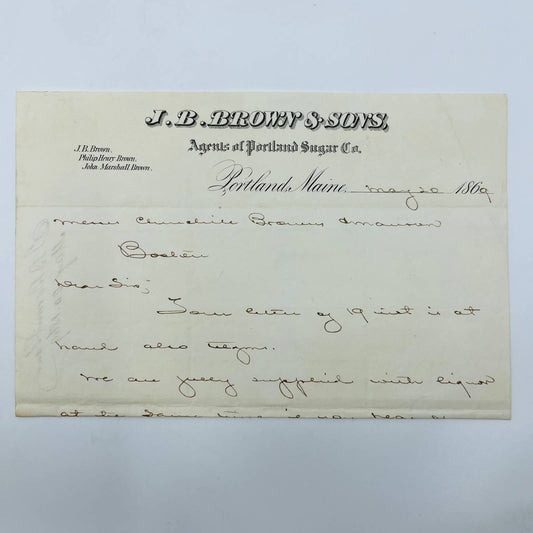 J. B. BROWN & SONS,
Agents of Portland Sugar Co.
J. B. Brown.
Philip Henry Brown.
John Marshall Brown.
Portland, Maine, May 20 1869
Messrs Churchill Browns & Manson
Boston
Dear Sirs,
Your letter of 19 inst is at
hand also telgm.
We are fully supplied with liquor
at the same time